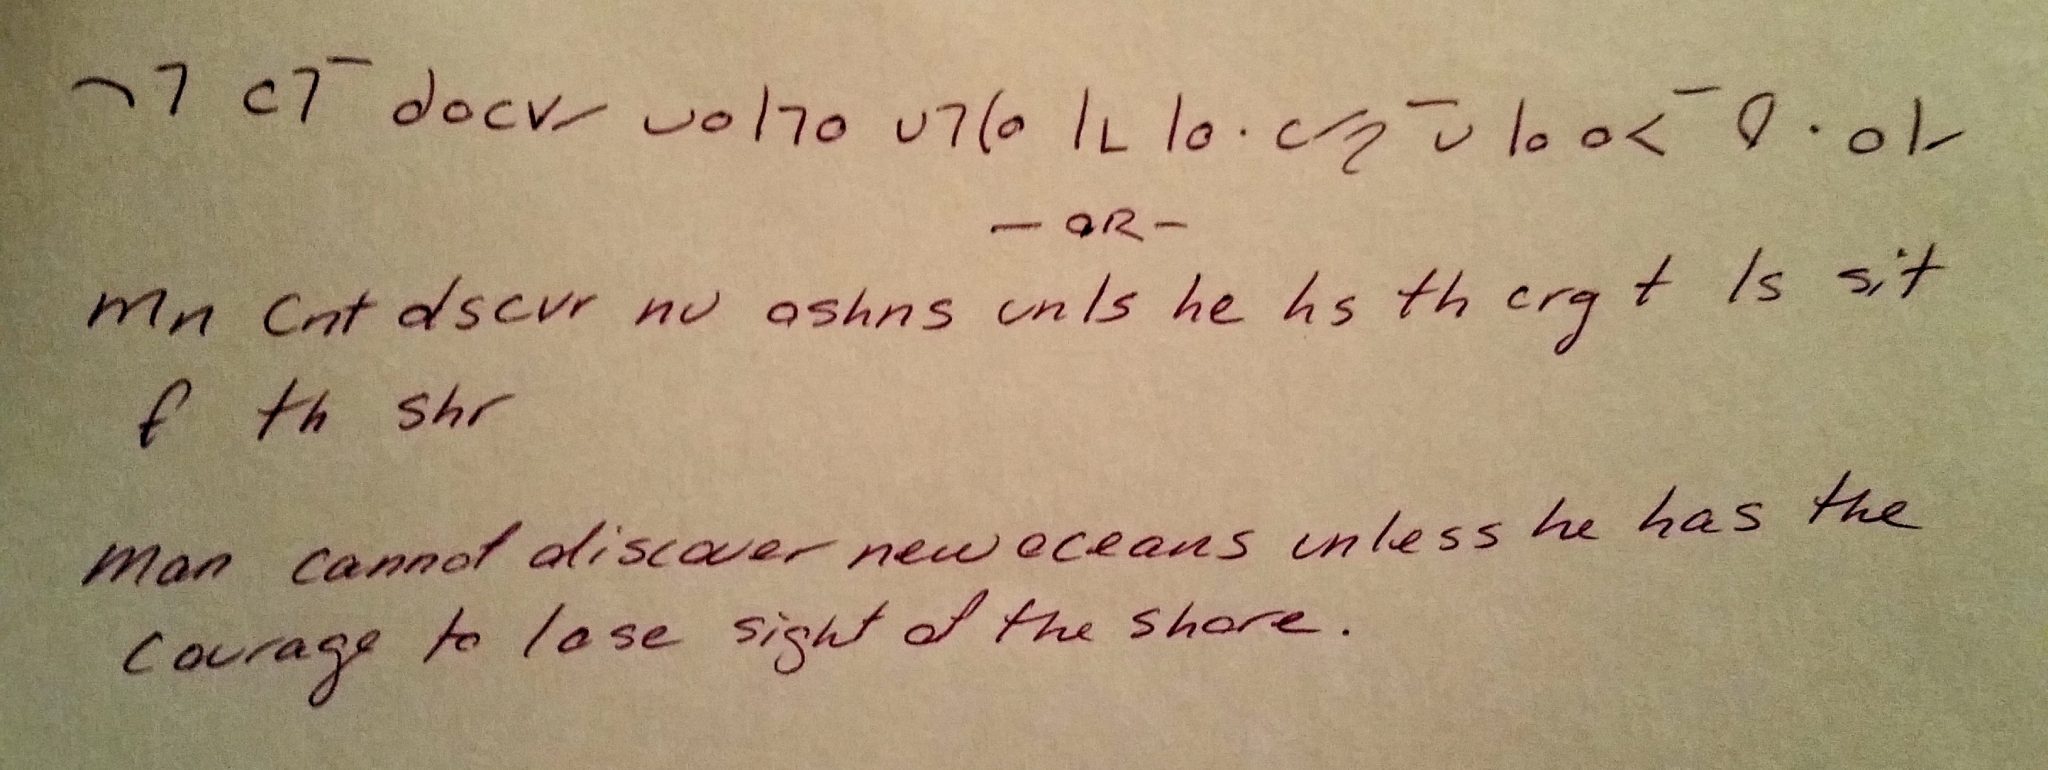 — OR —
Mn Cnt dscvr nu oshns unls he hs th crg t ls sit
f th shr
Man cannot discover new oceans unless he has the
courage to lose sight of the shore.